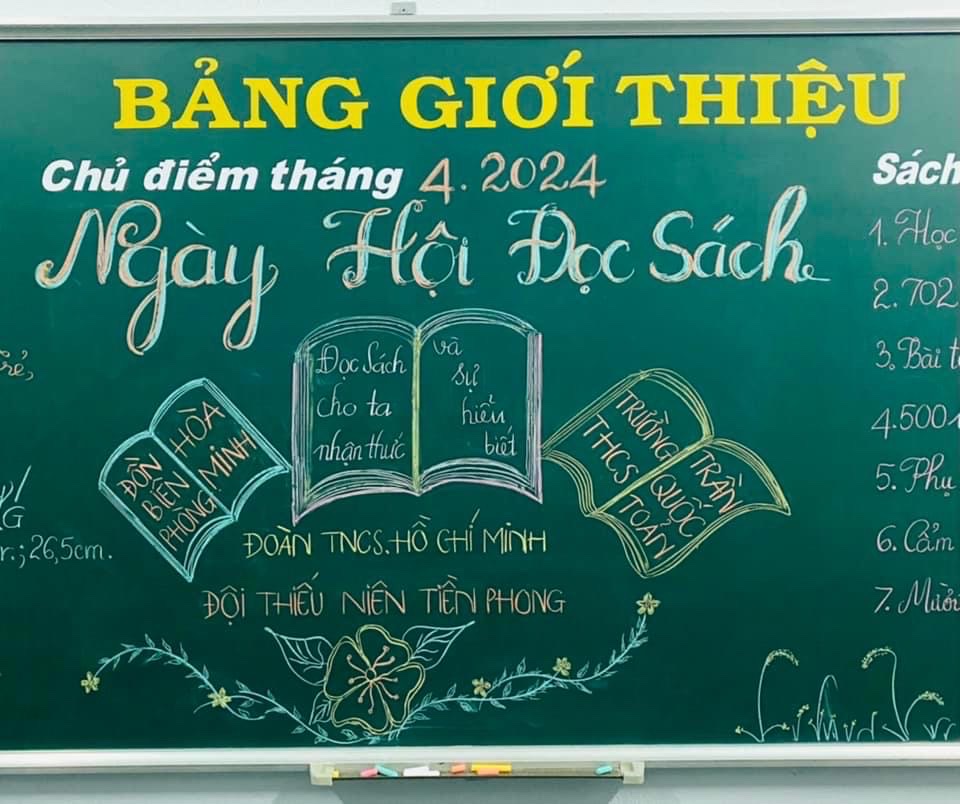 BẢNG GIỚI THIỆU
Chủ điểm tháng 4.2024
Ngày Hội Đọc Sách
Đọc Sách
cho ta
nhận thức
và
sự
hiểu
biết
ĐỒN
BIÊN
PHÒNG
HÒA
MINH
TRƯỜNG
THCS
TRẦN
QUỐC
TOẢN
ĐOÀN TNCS.HỒ CHÍ MINH
ĐỘI THIẾU NIÊN TIỀN PHONG
r.; 26,5cm.
Sách
1. Học
2. 702
3. Bài t
4. 500
5. Phụ
6. Cẩm
7. Mười